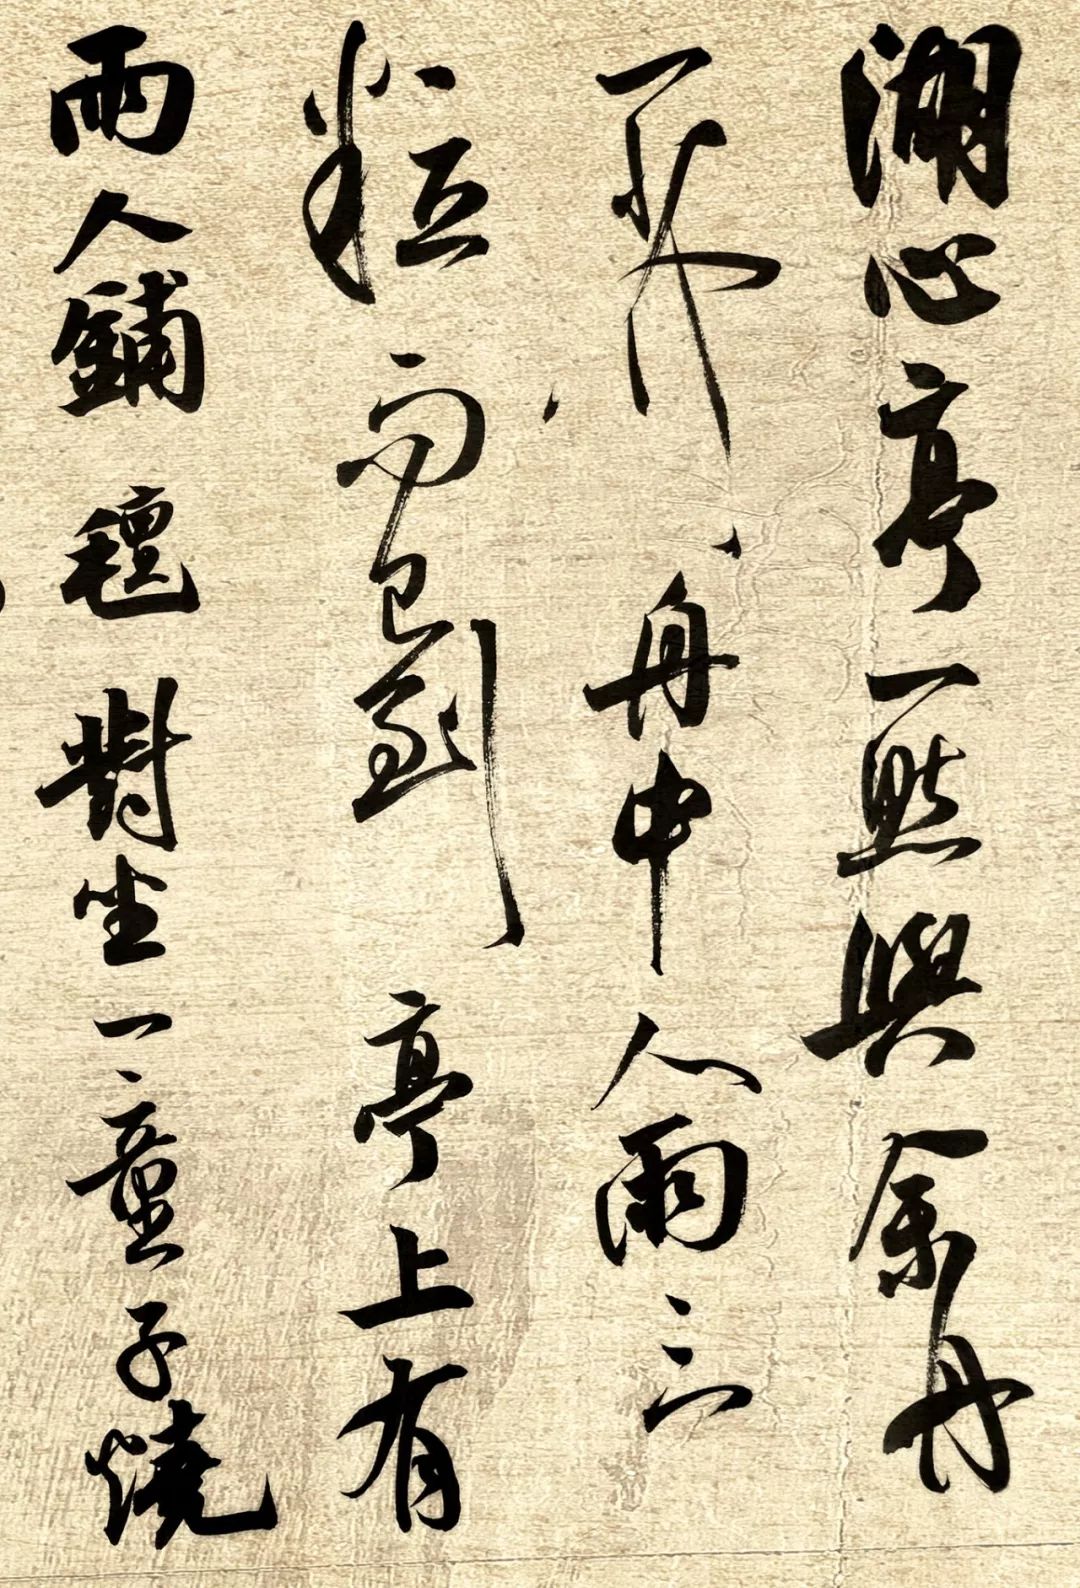 湖心亭一點與余舟
一芥舟中人兩三
粒而已到亭上有
兩人鋪氊對坐一童子燒